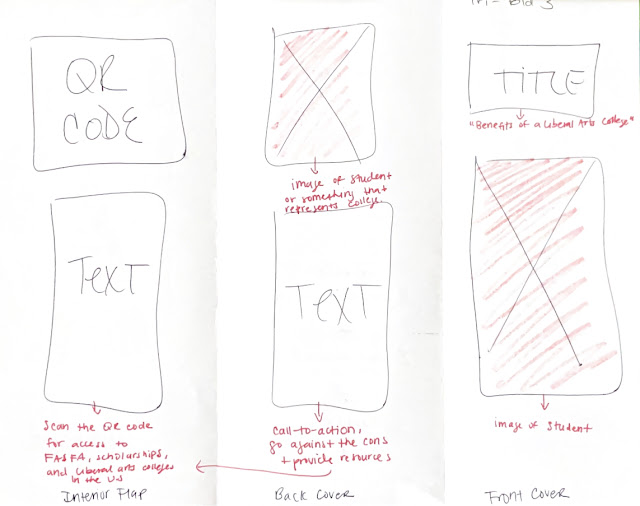 QR
CODE
TEXT
Scan the QR code
for access to
FASFA, scholarships,
and liberal arts colleges
in the US
Interior Flap
image of student
or something that
represents college.
TEXT
call-to-action,
go against the cons
+ provide resources
Back Cover
Tri-Fold 3
TITLE
"Benefits of a Liberal Arts College"
image of student
Front Cover